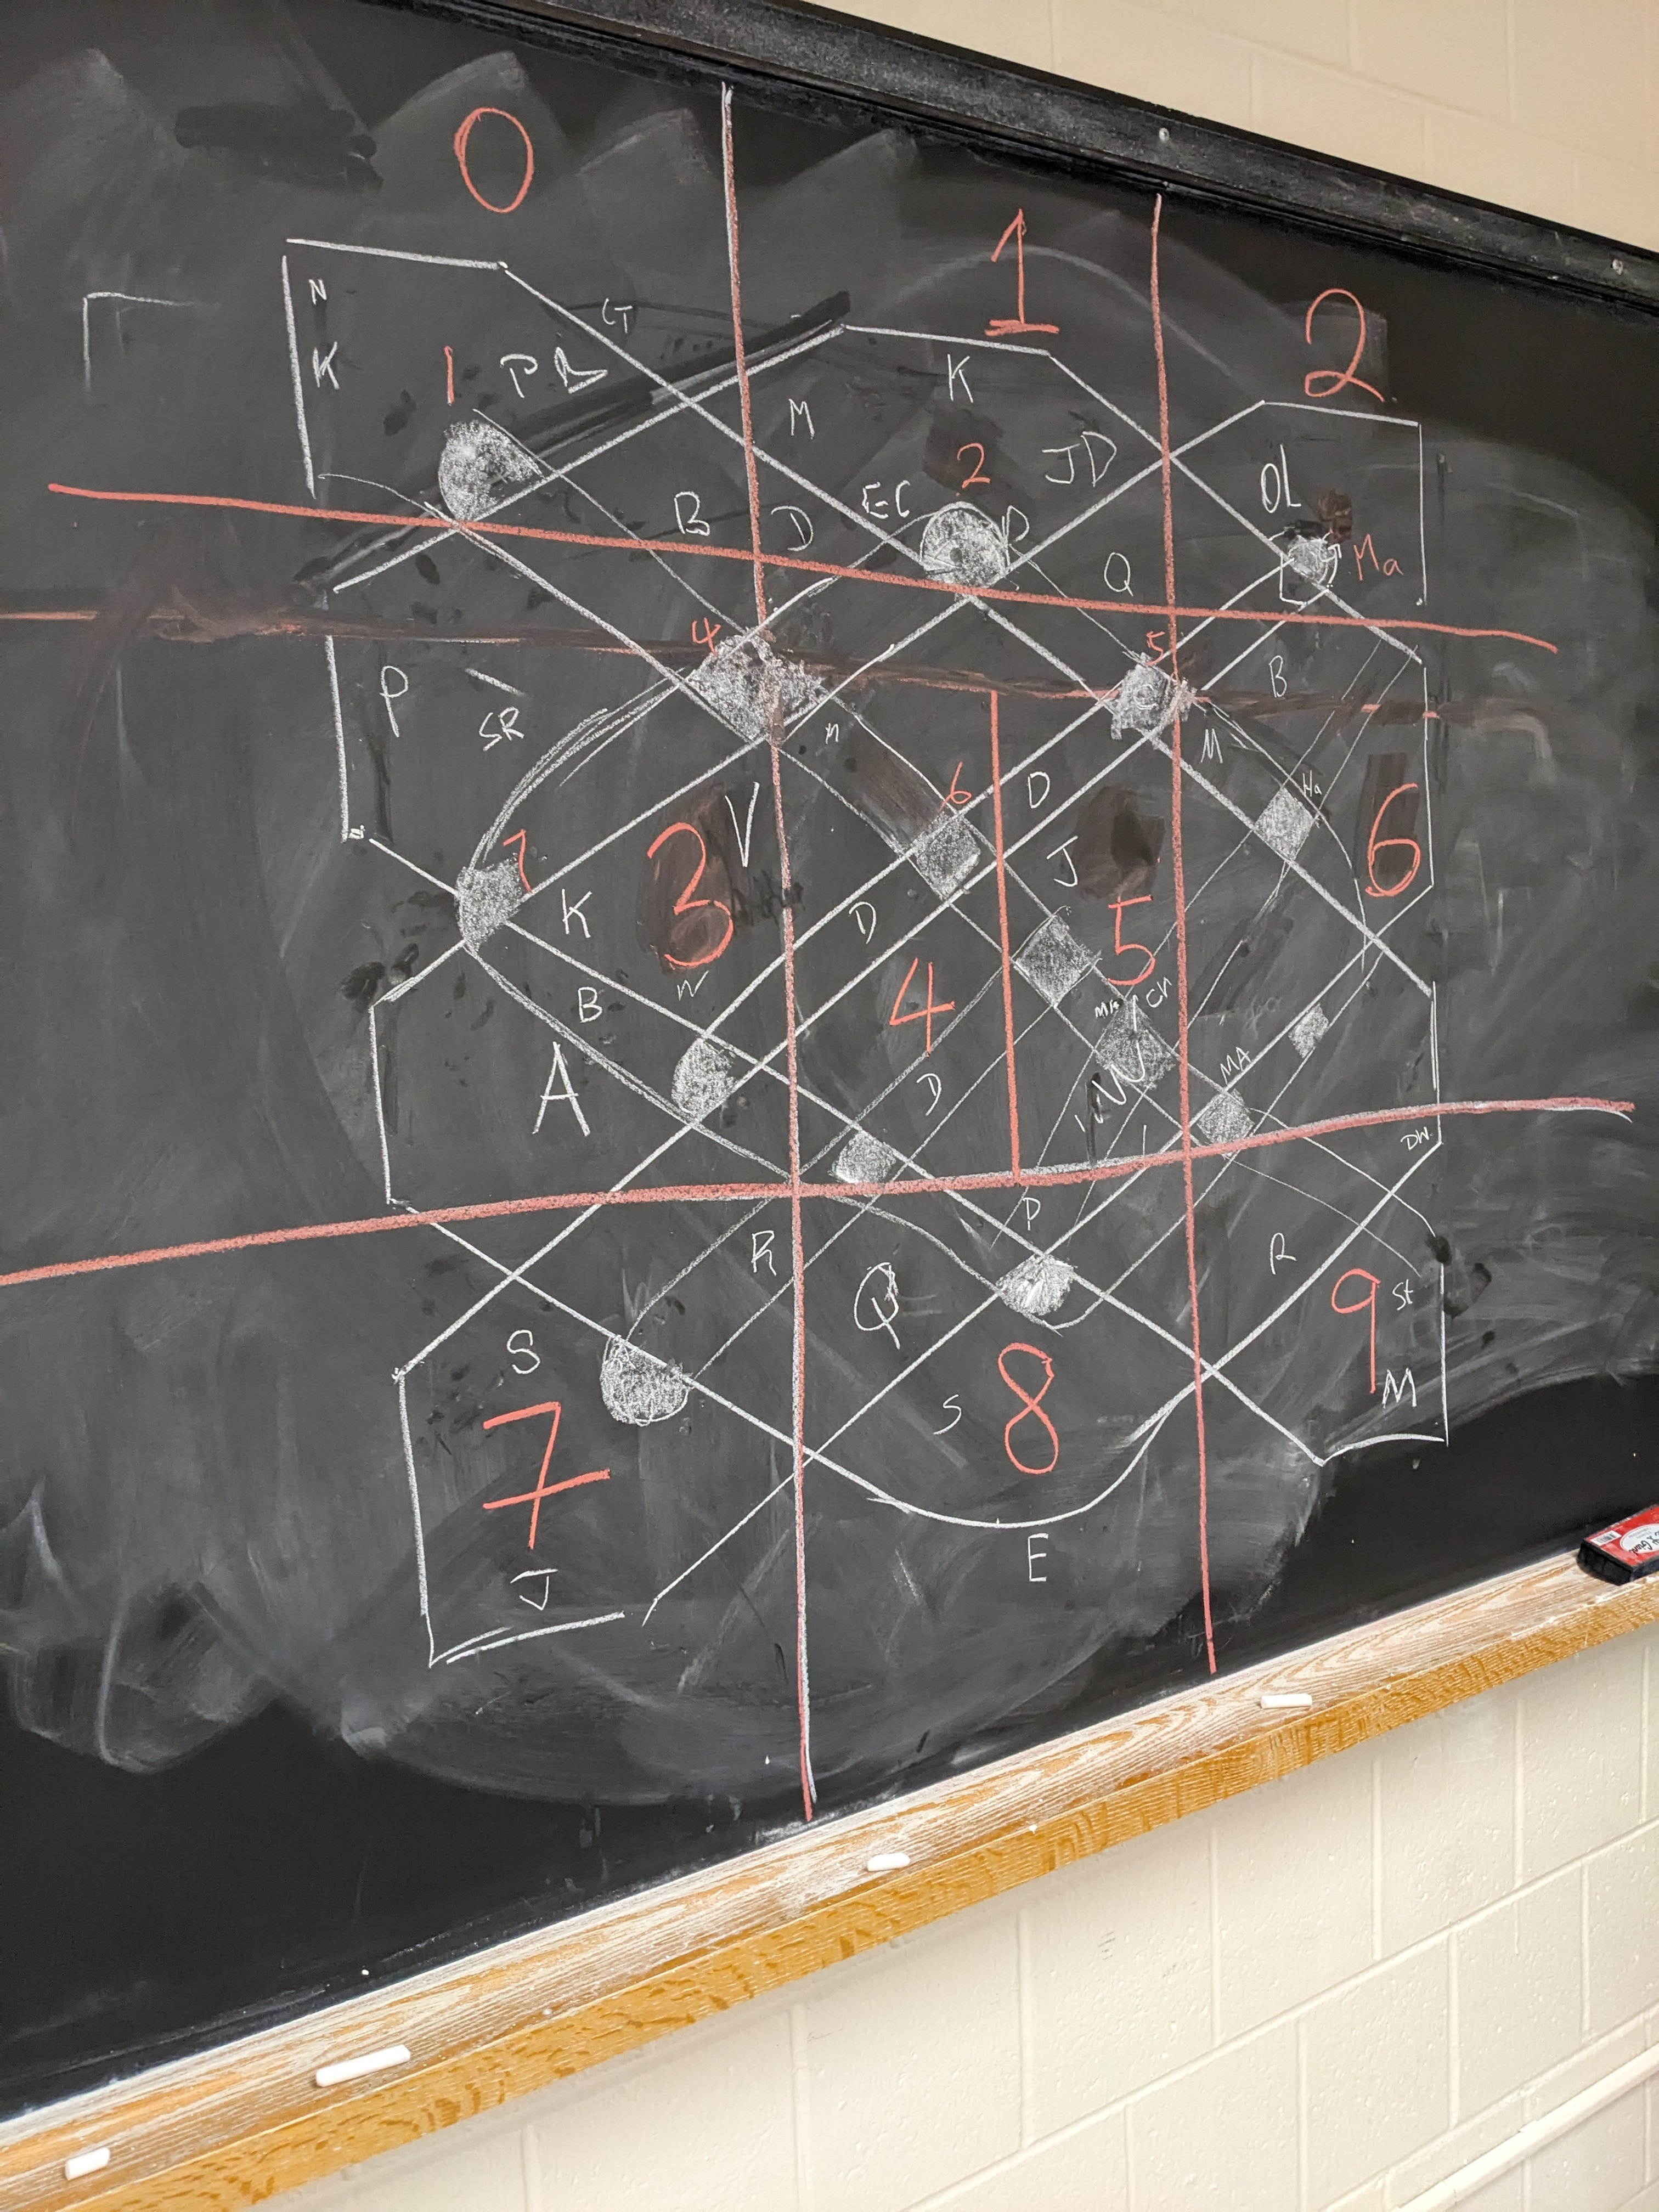 0
1
2
N
K
1
P B
G
M
K
2
JD
OL
B
D
EC
P
Q
Ma
4
5
P
SR
M
B
M
V
6
D
Ha
7
3
K
J
6
D
5
W
B
4
Mk
Ch
A
D
MA
DW
R
P
R
Q
9
St
S
7
S
8
M
J
E